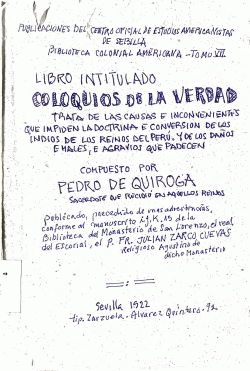 PUBLICACIONES DEL CENTRO OFICIAL DE ESTUDIOS AMERICANISTAS
DE SEVILLA
BIBLIOTECA COLONIAL AMERICANA - TOMO VII
LIBRO INTITULADO
COLOQUIOS DE LA VERDAD
TRATA DE LAS CAUSAS E INCONVENIENTES
QUE IMPIDEN LA DOCTRINA E CONVERSION DE LOS
INDIOS DE LOS REINOS DEL PERÚ. Y DE LOS DAÑOS
E MALES, E AGRAVIOS QUE PADECEN
COMPUESTO POR
PEDRO DE QUIROGA
SACERDOTE QUE RESIDIÓ EN AQUELLOS REINOS
publícalo, precedido de unas advertencias,
conforme al manuscrito
Biblioteca del Monasterio de San Lorenzo, el real
del Escorial, el P. FR. JULIAN ZARCO CUEVAS
Religioso Agustino de
dicho Monasterio
Sevilla 1922
tip. Zarzuela. - Alvarez Quintero. - 92